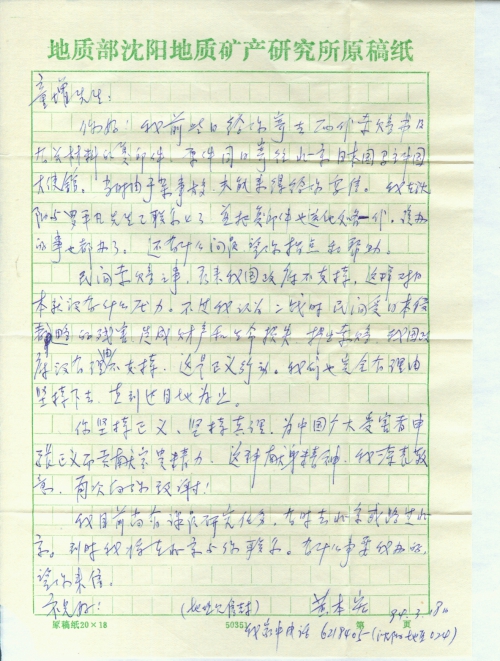 地质部沈阳地质矿产研究所原稿纸
童增先生：
你好！我前些日给你寄去两份索赔书及
有关材料的复印件，原件同日寄给北京日本国驻中国
大使馆。当时由于某事故，未能来得给你写信。我在沈
阳与罗平凡先生已联系上了，并把复印件也送他一份，该办
的事也都办了。还有什么问题望你指点和帮助。
民间索赔之事，看来我国政府不支持，这样对日
本就没有什么压力。不过我认为二战时民间受日本侵
略的残害造成财产和生命损失，提出索赔，我国政
府没有理由不支持，这是正义行动。我们也完全有理由
坚持下去，直到达目地为止。
你坚持正义、坚持真理，为中国广大受害者申
张正义而贡献宝贵精力，这种献身精神，我深表敬
意，再次向你致谢！
我目前尚有课题研究任务，有时去北京或路过北
京。到时我将在北京与你联系。有什么事要我办的，
望你来信。
祝好！
(地址见信封)
黄本宏
94.3.18
原稿纸20×18
50351
第 页
我家中电话 6219405